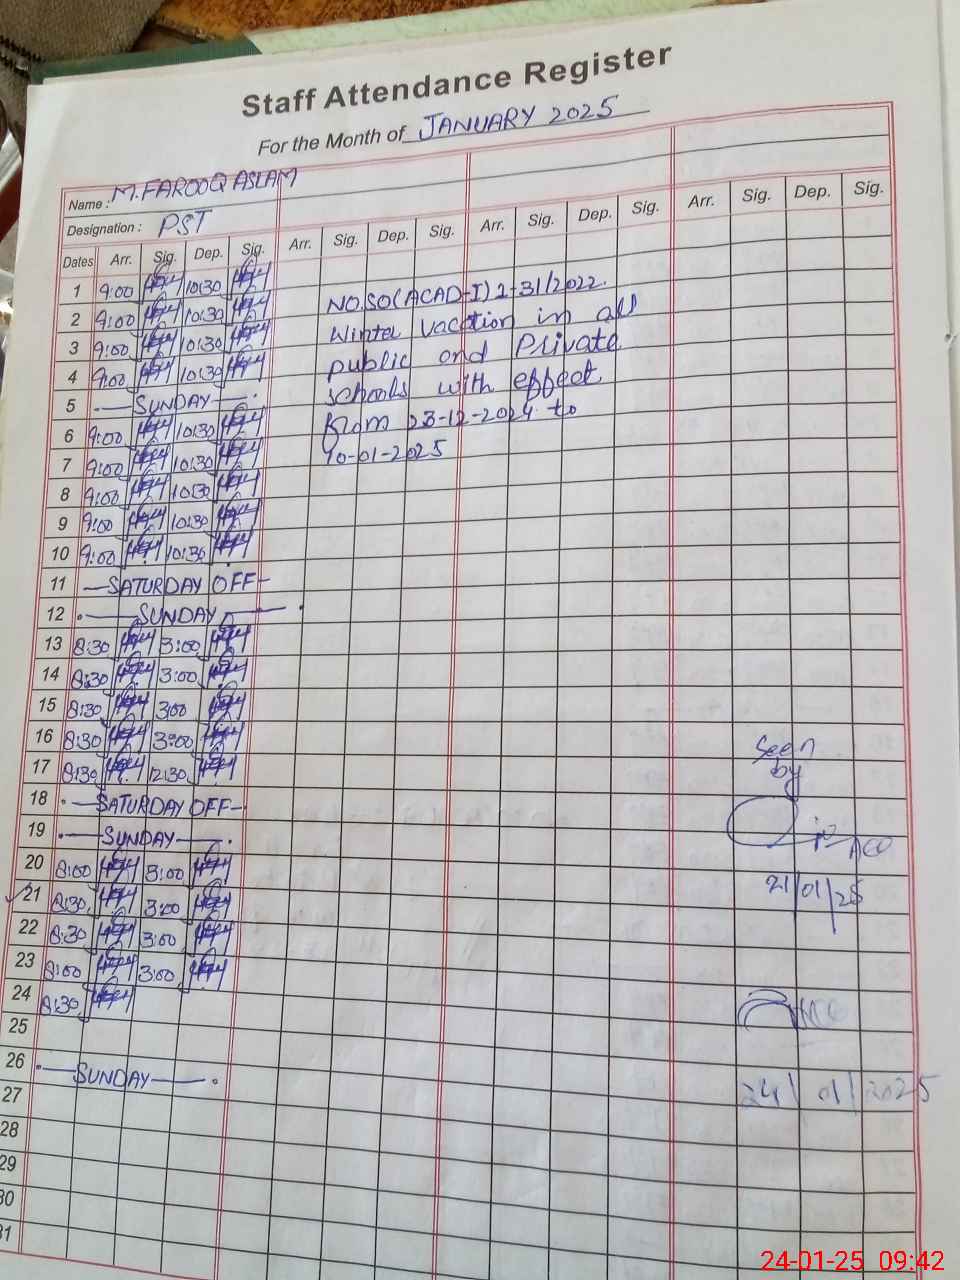 Staff Attendance Register
For the Month of JANUARY 2025
Name : M. FAROOQ ASLAM
Designation : PST
Dates Arr. Sig. Dep. Sig. Arr. Sig. Dep. Sig. Arr. Sig. Dep. Sig. Arr. Sig. Dep. Sig.
1 9:00 10:30
2 9:00 10:30 NO.SO(ACAD-I) 2-31/2022.
3 9:00 10:30 Winter vacation in all
4 9:00 10:30 public and Private
5 SUNDAY schools with effect
6 9:00 10:30 from 23-12-2024 to
7 9:00 10:30 10-01-2025
8 9:00 10:30
9 9:00 10:30
10 9:00 10:30
11 SATURDAY OFF
12 SUNDAY
13 8:30 3:00
14 8:30 3:00
15 8:30 3:00
16 8:30 3:00
17 8:30 12:30 Seen
by
18 SATURDAY OFF
19 SUNDAY
20 8:00 3:00
21 8:30 3:00 21/01/25
22 8:30 3:00
23 8:00 3:00
24 8:30
25
26 SUNDAY
27 24/01/2025
28
29
30
31
24-01-25 09:42